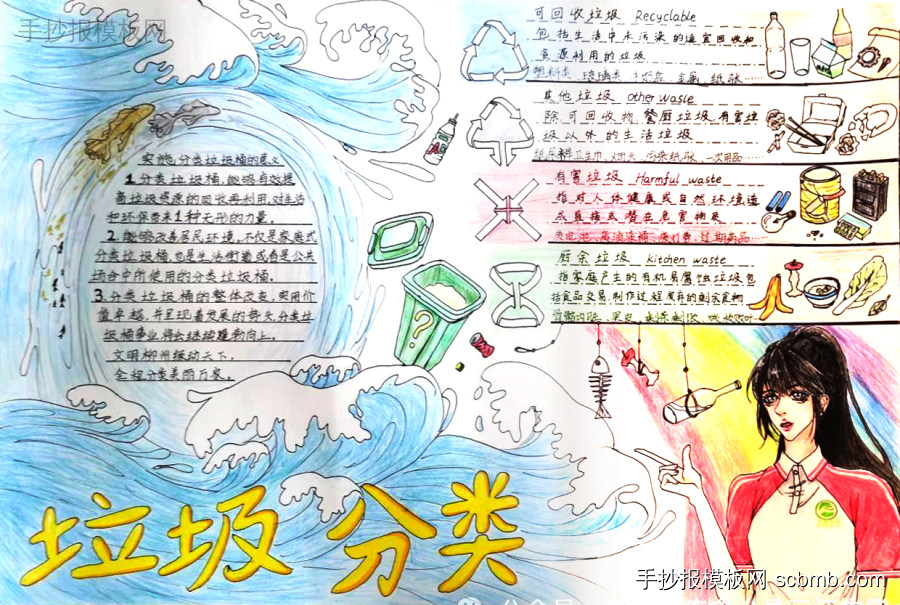 手抄报模板网
实施分类垃圾桶的意义
1.分类垃圾桶,能够有效提
高垃圾资源的回收再利用,对生活
和环保带来1种无形的力量。
2.能够改善居民环境,不仅是家庭式
分类垃圾桶,也是生活街道或者是公共
场合中所使用的分类垃圾桶。
3.分类垃圾桶的整体改造,实用价
值卓越,并呈现着发展的势头,分类垃
圾桶事业将会继续顺利向上。
文明柳州振动天下,
全祖分类美丽万家。
可回收垃圾 Recyclable
包括生活中未污染的适宜回收和
资源利用的垃圾
塑料类 玻璃类 金属 纸张……
其他垃圾 other waste
除可回收物、餐厨垃圾、有害垃
圾以外的生活垃圾
一次用品……
有害垃圾 Harmful waste
指对人体健康或自然环境造
成直接或潜在危害物质
废电池、过期药品……
厨余垃圾 kitchen waste
指家庭产生的有机易腐蚀垃圾包
括食品交易、制作过程废弃的剩余食物
?
垃圾分类
手抄报模板网 scbmb.com